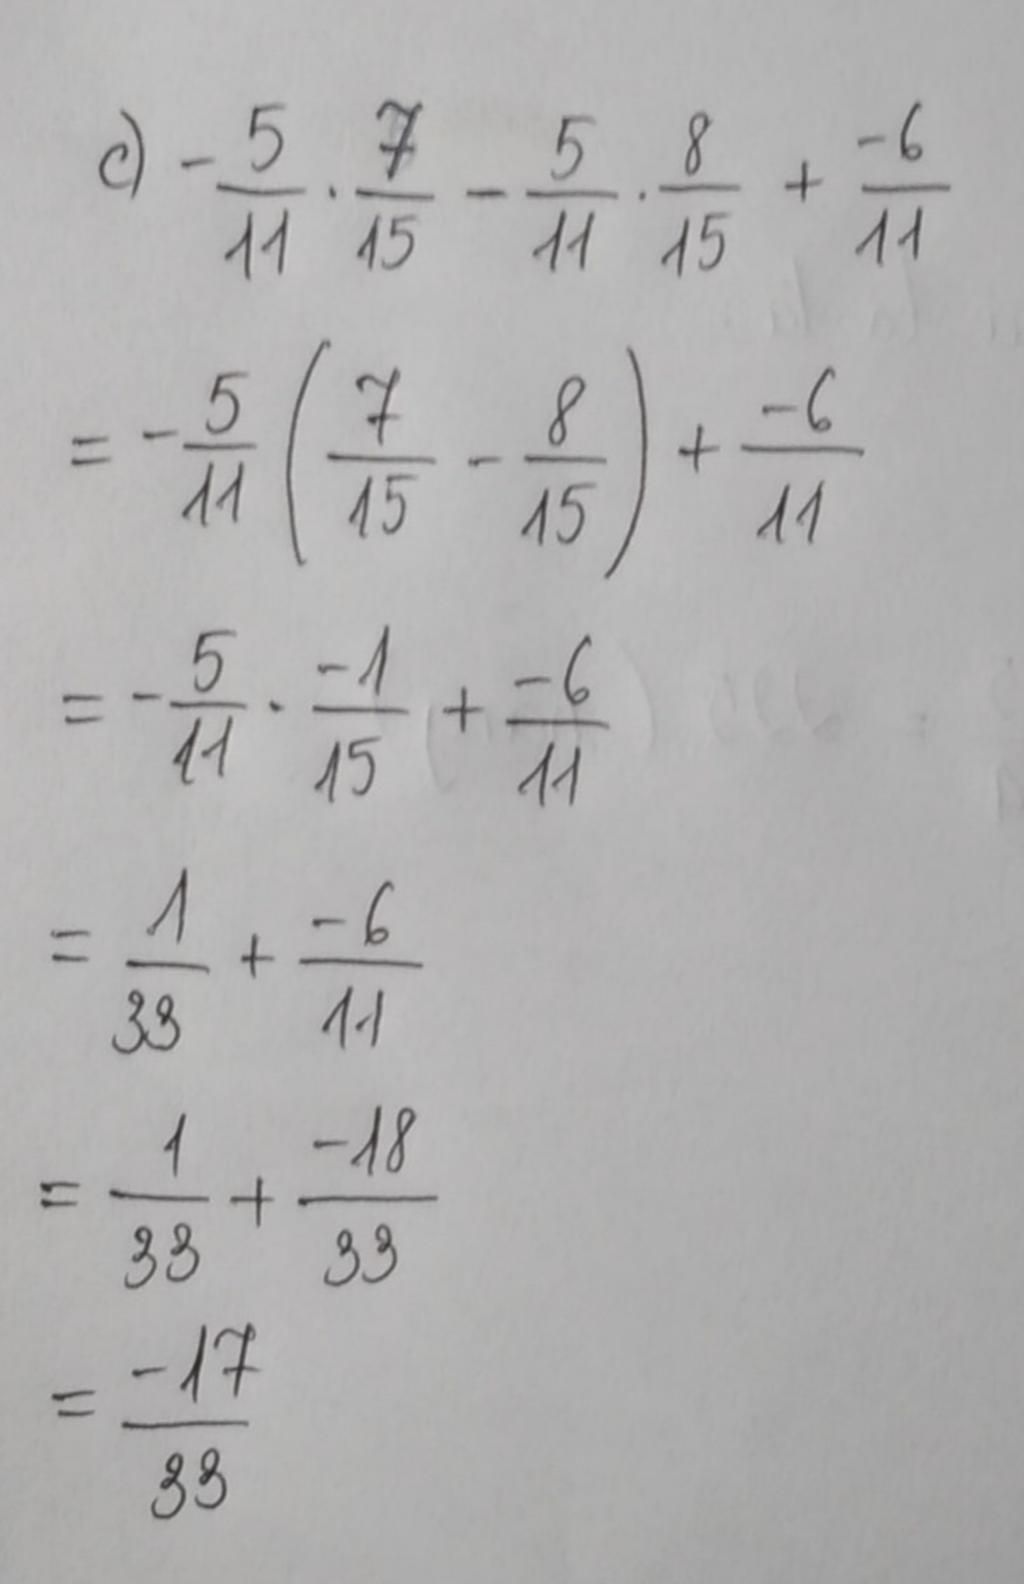 c) -5/11 · 7/15 - 5/11 · 8/15 + -6/11
= -5/11 (7/15 - 8/15) + -6/11
= -5/11 · -1/15 + -6/11
= 1/33 + -6/11
= 1/33 + -18/33
= -17/33